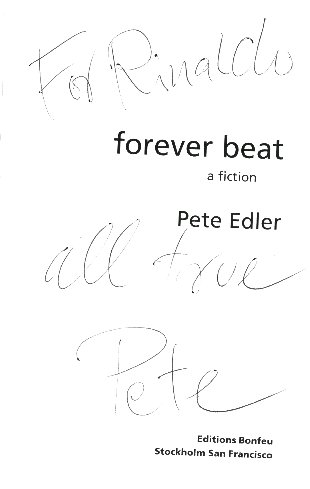 For Rinaldo
forever beat
a fiction
Pete Edler
all true
Pete
Editions Bonfeu
Stockholm San Francisco